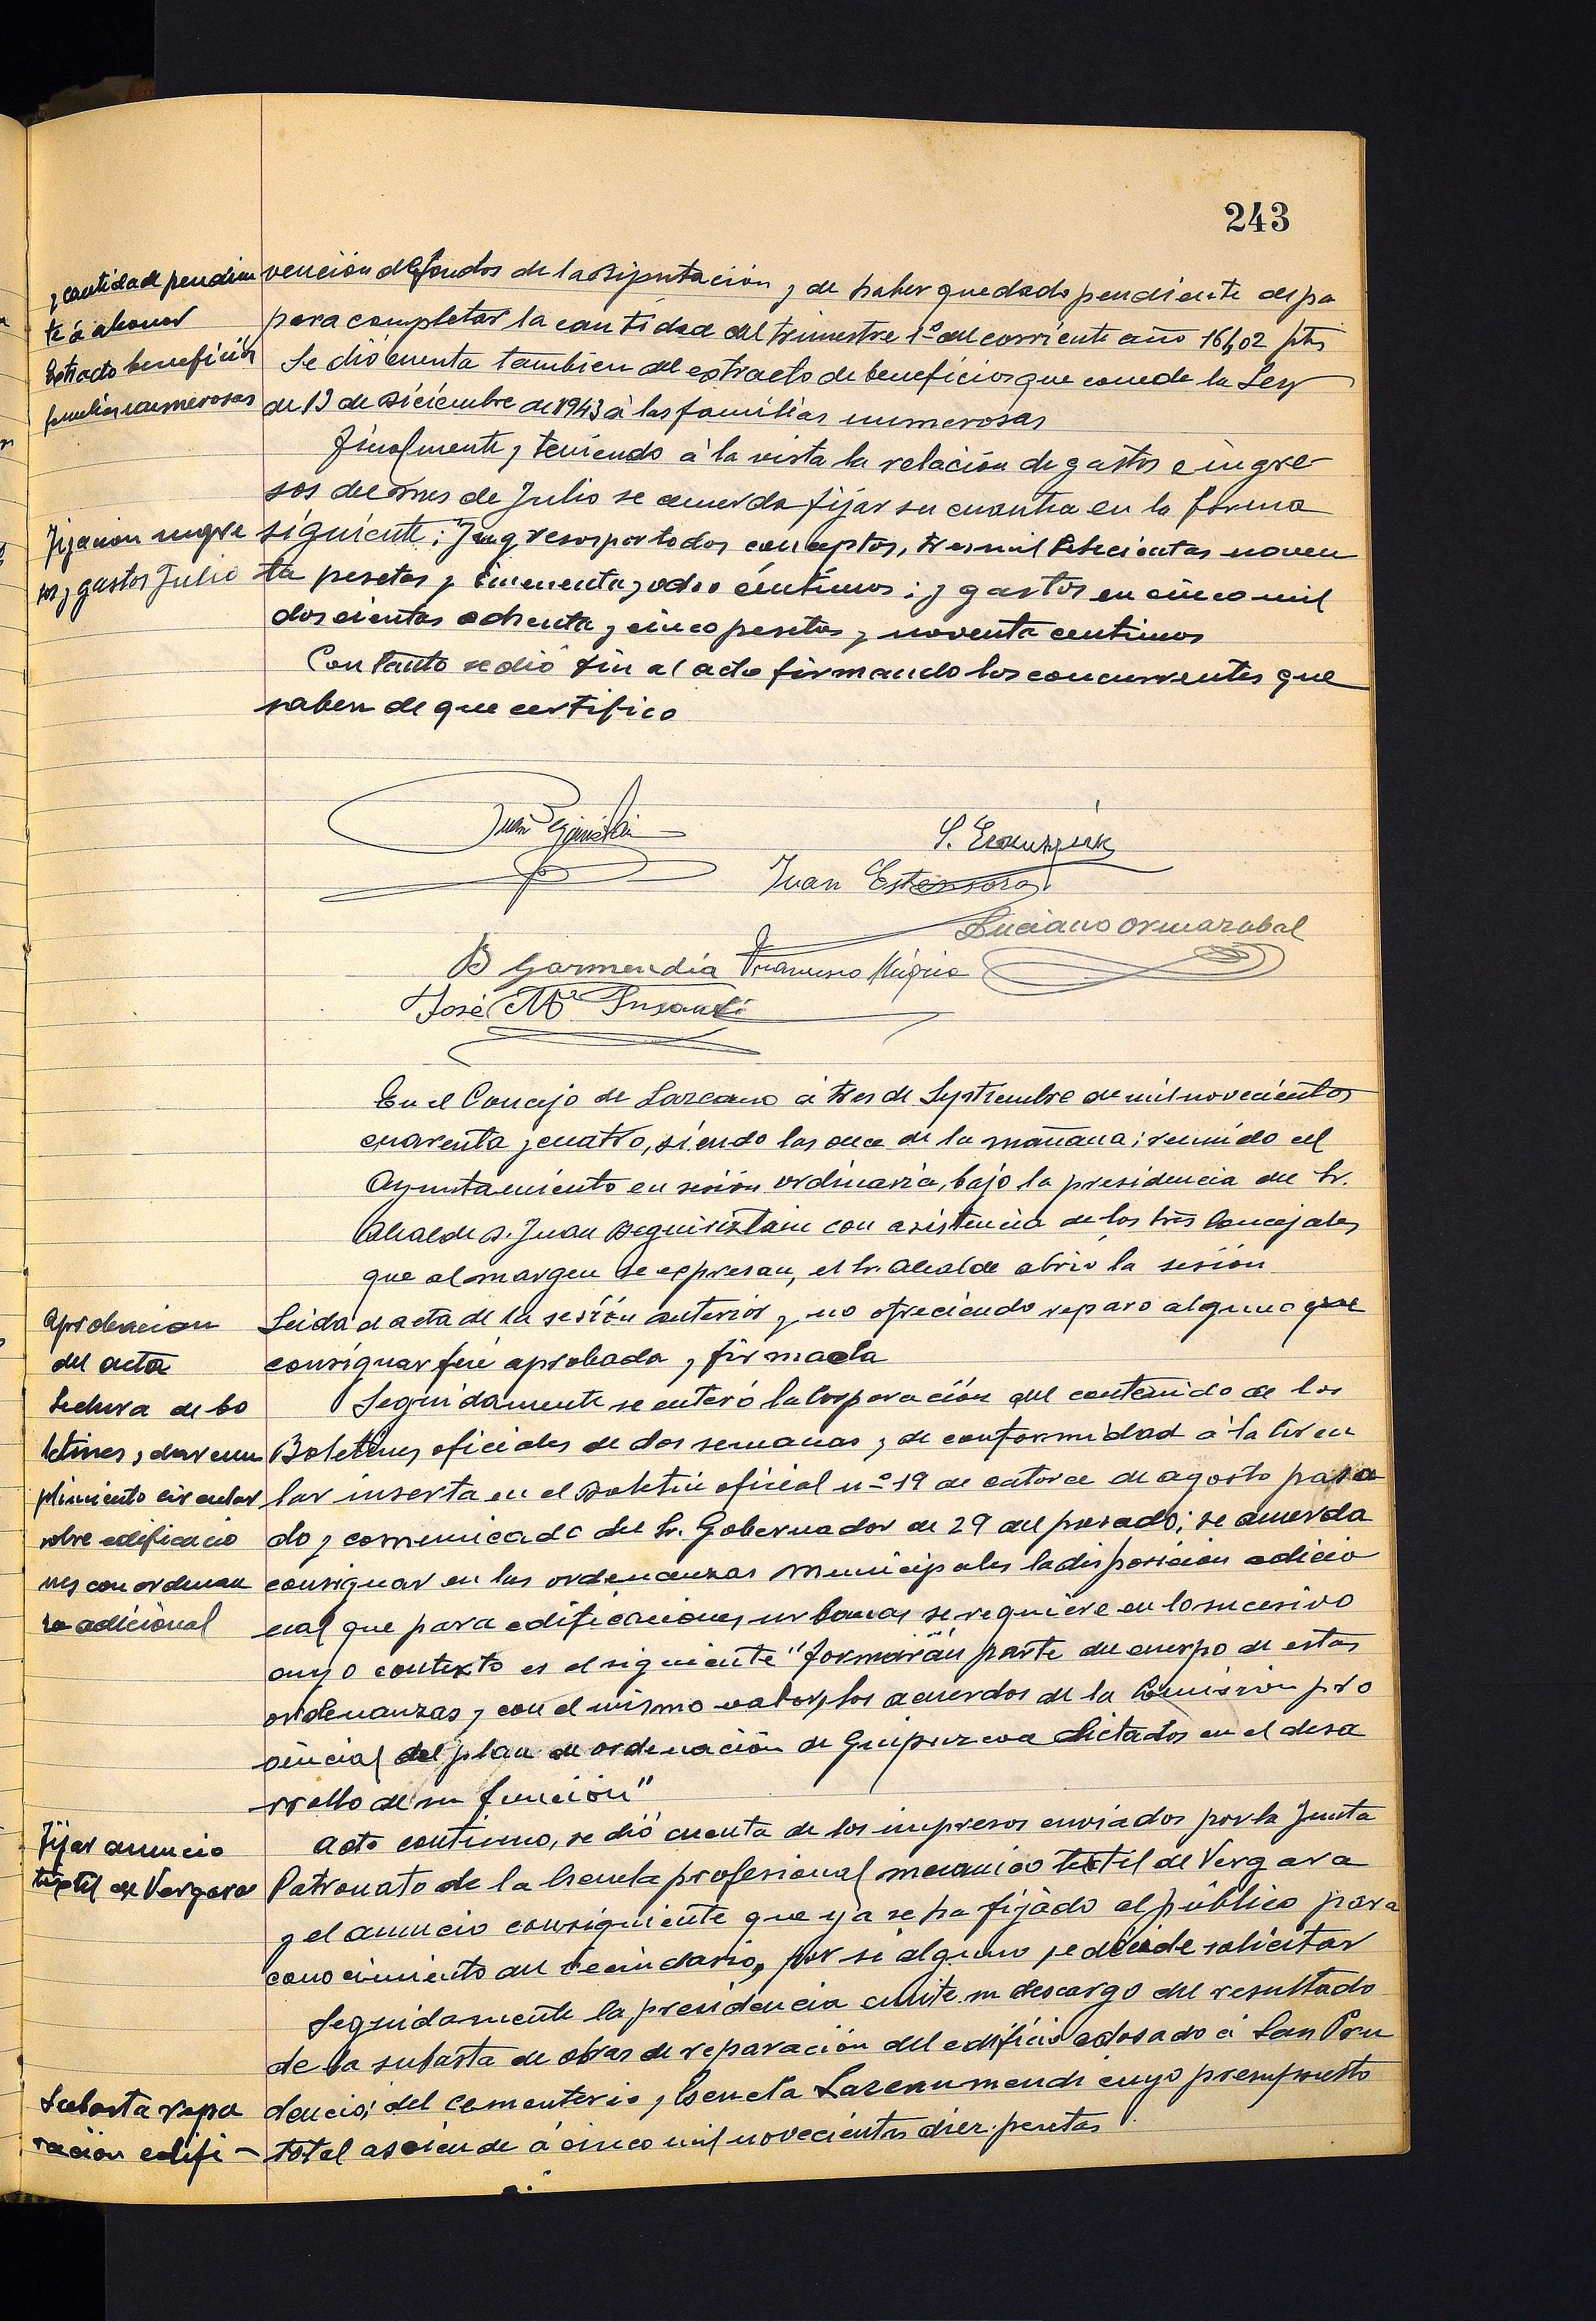 243
y cantidad pendien
te á abonar
Extracto beneficios
familias numerosas
vención de fondos de la Diputación y de haber quedado pendiente de pa
para completar la cantidad del trimestre 1º del corriente año 16,02 pts
Se dió cuenta tambien del extracto de beneficios que concede la Ley
de 13 de Diciembre de 1943 á las familias numerosas
Finalmente y teniendo á la vista la relación de gastos e ingre
sos del mes de Julio se acuerda fijar su cuantia en la forma
Fijacion ingre
sos y gastos Julio
siguiente; Ingresos por todos conceptos, tres mil setecientas noven
ta pesetas y cincuenta y ocho centimos; y gastos en cinco mil
doscientas ochenta y cinco pesetas y noventa centimos
Con tanto se dió fin al acto firmando los concurrentes que
saben de que certifico
Juan
Juan Estensoro
Luciano Ormazabal
B Garmendia Francisco Múgica
José Mª Insausti
En el Concejo de Lazcano á tres de Septiembre de mil novecientos
cuarenta y cuatro, siendo las once de la mañana; reunido el
Ayuntamiento en sesión ordinaria, bajo la presidencia del Sr.
Alcalde D. Juan Deguiristain con asistencia de los tres Concejales
que al margen se expresan, el Sr. Alcalde abrió la sesión
Aprobacion
del acta
Leida el acta de la sesión anterior y no ofreciendo reparo alguno que
consignar fué aprobada y firmada
Lectura de bo
letines y dar cum
plimiento circular
sobre edificacio
nes con ordenan
za adicional
Seguidamente se enteró la Corporación del contenido de los
Boletines oficiales de dos semanas y de conformidad á la circu
lar inserta en el Boletin oficial nº 19 de catorce de agosto pasa
do y comunicado del Sr. Gobernador de 29 del pasado; se acuerda
consignar en las ordenanzas municipales la disposicion adicio
nal que para edificaciones urbanas se requiere en lo sucesivo
cuyo contexto es el siguiente "formarán parte del cuerpo de estas
ordenanzas y con el mismo valor, los acuerdos de la Comision pro
vincial del plan de ordenación de Guipuzcoa dictados en el desa
rrollo de su función"
Fijar anuncio
textil de Vergara
Acto continuo, se dió cuenta de los impresos enviados por la Junta
Patronato de la Escuela profesional mecanico textil de Vergara
y el anuncio consiguiente que ya se ha fijado al público para
conocimiento del vecindario, por si alguno se decide solicitar
Seguidamente la presidencia emite su descargo del resultado
de la subasta de obras de reparación del edificio adosado á San Pru
Subasta repa
ración edifi -
dencio; del cementerio y Escuela Lazcanumendi cuyo presupuesto
total asciende á cinco mil novecientas diez pesetas